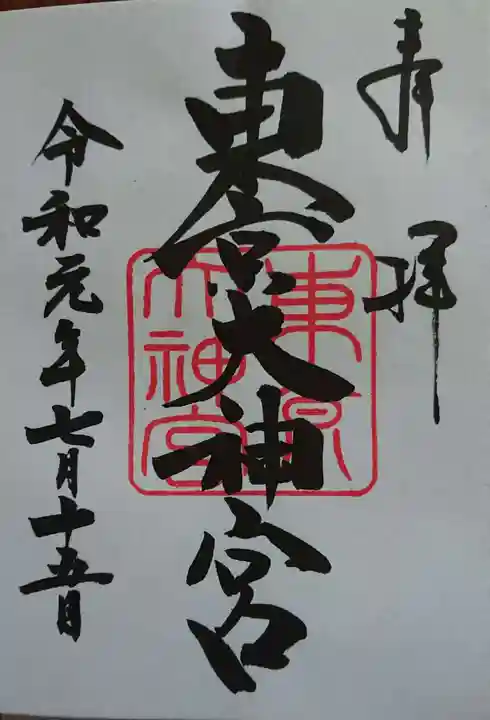 奉拝
東京大神宮
東京
大神宮
令和元年七月十五日